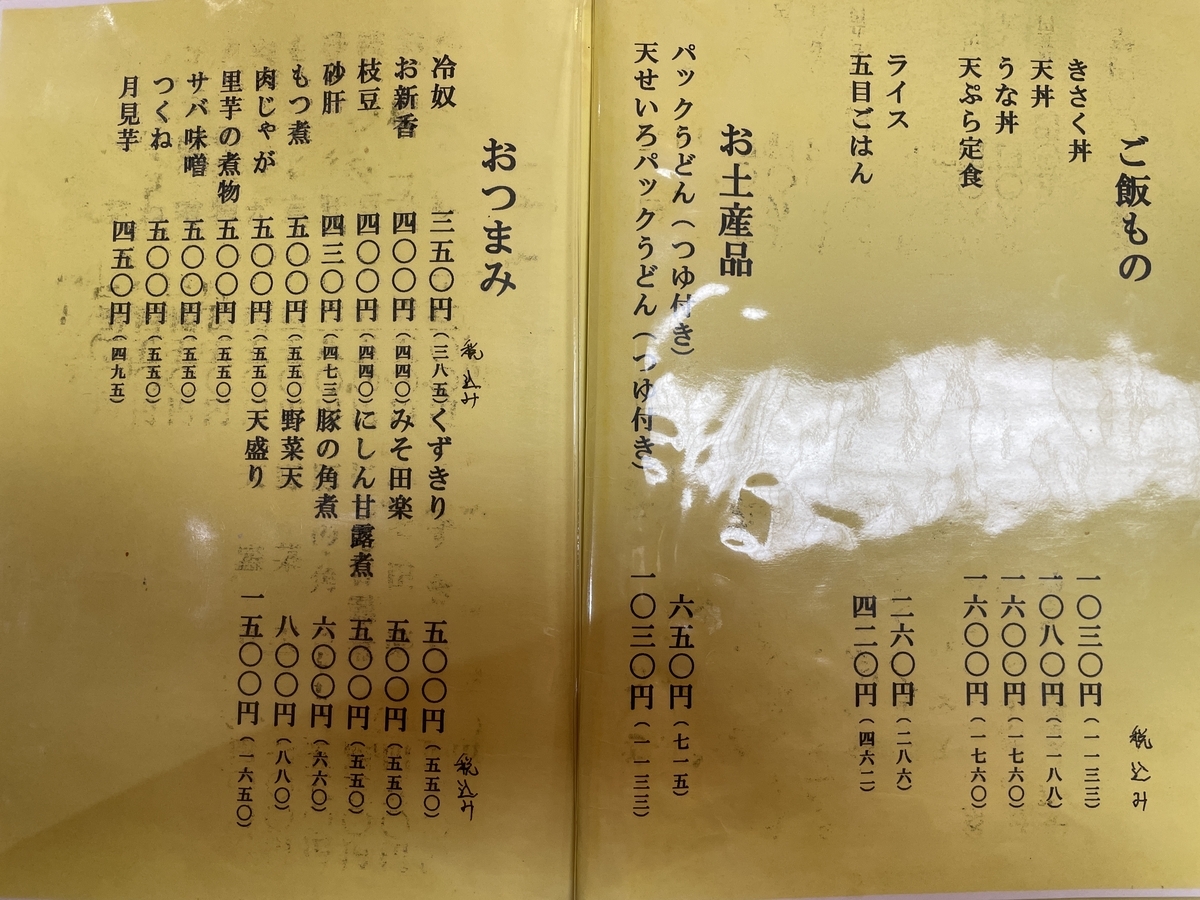 ご飯もの
税込み
きさく丼 一〇三〇円(一一三三)
天丼 一〇八〇円(一一八八)
うな丼 一六〇〇円(一七六〇)
天ぷら定食 一六〇〇円(一七六〇)
ライス 二六〇円(二八六)
五目ごはん 四二〇円(四六二)
お土産品
パックうどん(つゆ付き) 六五〇円(七一五)
天せいろパックうどん(つゆ付き) 一〇三〇円(一一三三)
おつまみ
税込み
冷奴 三五〇円(三八五)
お新香 四〇〇円(四四〇)
枝豆 四〇〇円(四四〇)
砂肝 四三〇円(四七三)
もつ煮 五〇〇円(五五〇)
肉じゃが 五〇〇円(五五〇)
里芋の煮物 五〇〇円(五五〇)
サバ味噌 五〇〇円(五五〇)
つくね 五〇〇円(五五〇)
月見芋 四五〇円(四九五)
税込み
くずきり 五〇〇円(五五〇)
みそ田楽 五〇〇円(五五〇)
にしん甘露煮 五〇〇円(五五〇)
豚の角煮 六〇〇円(六六〇)
野菜天 八〇〇円(八八〇)
天盛り 一五〇〇円(一六五〇)